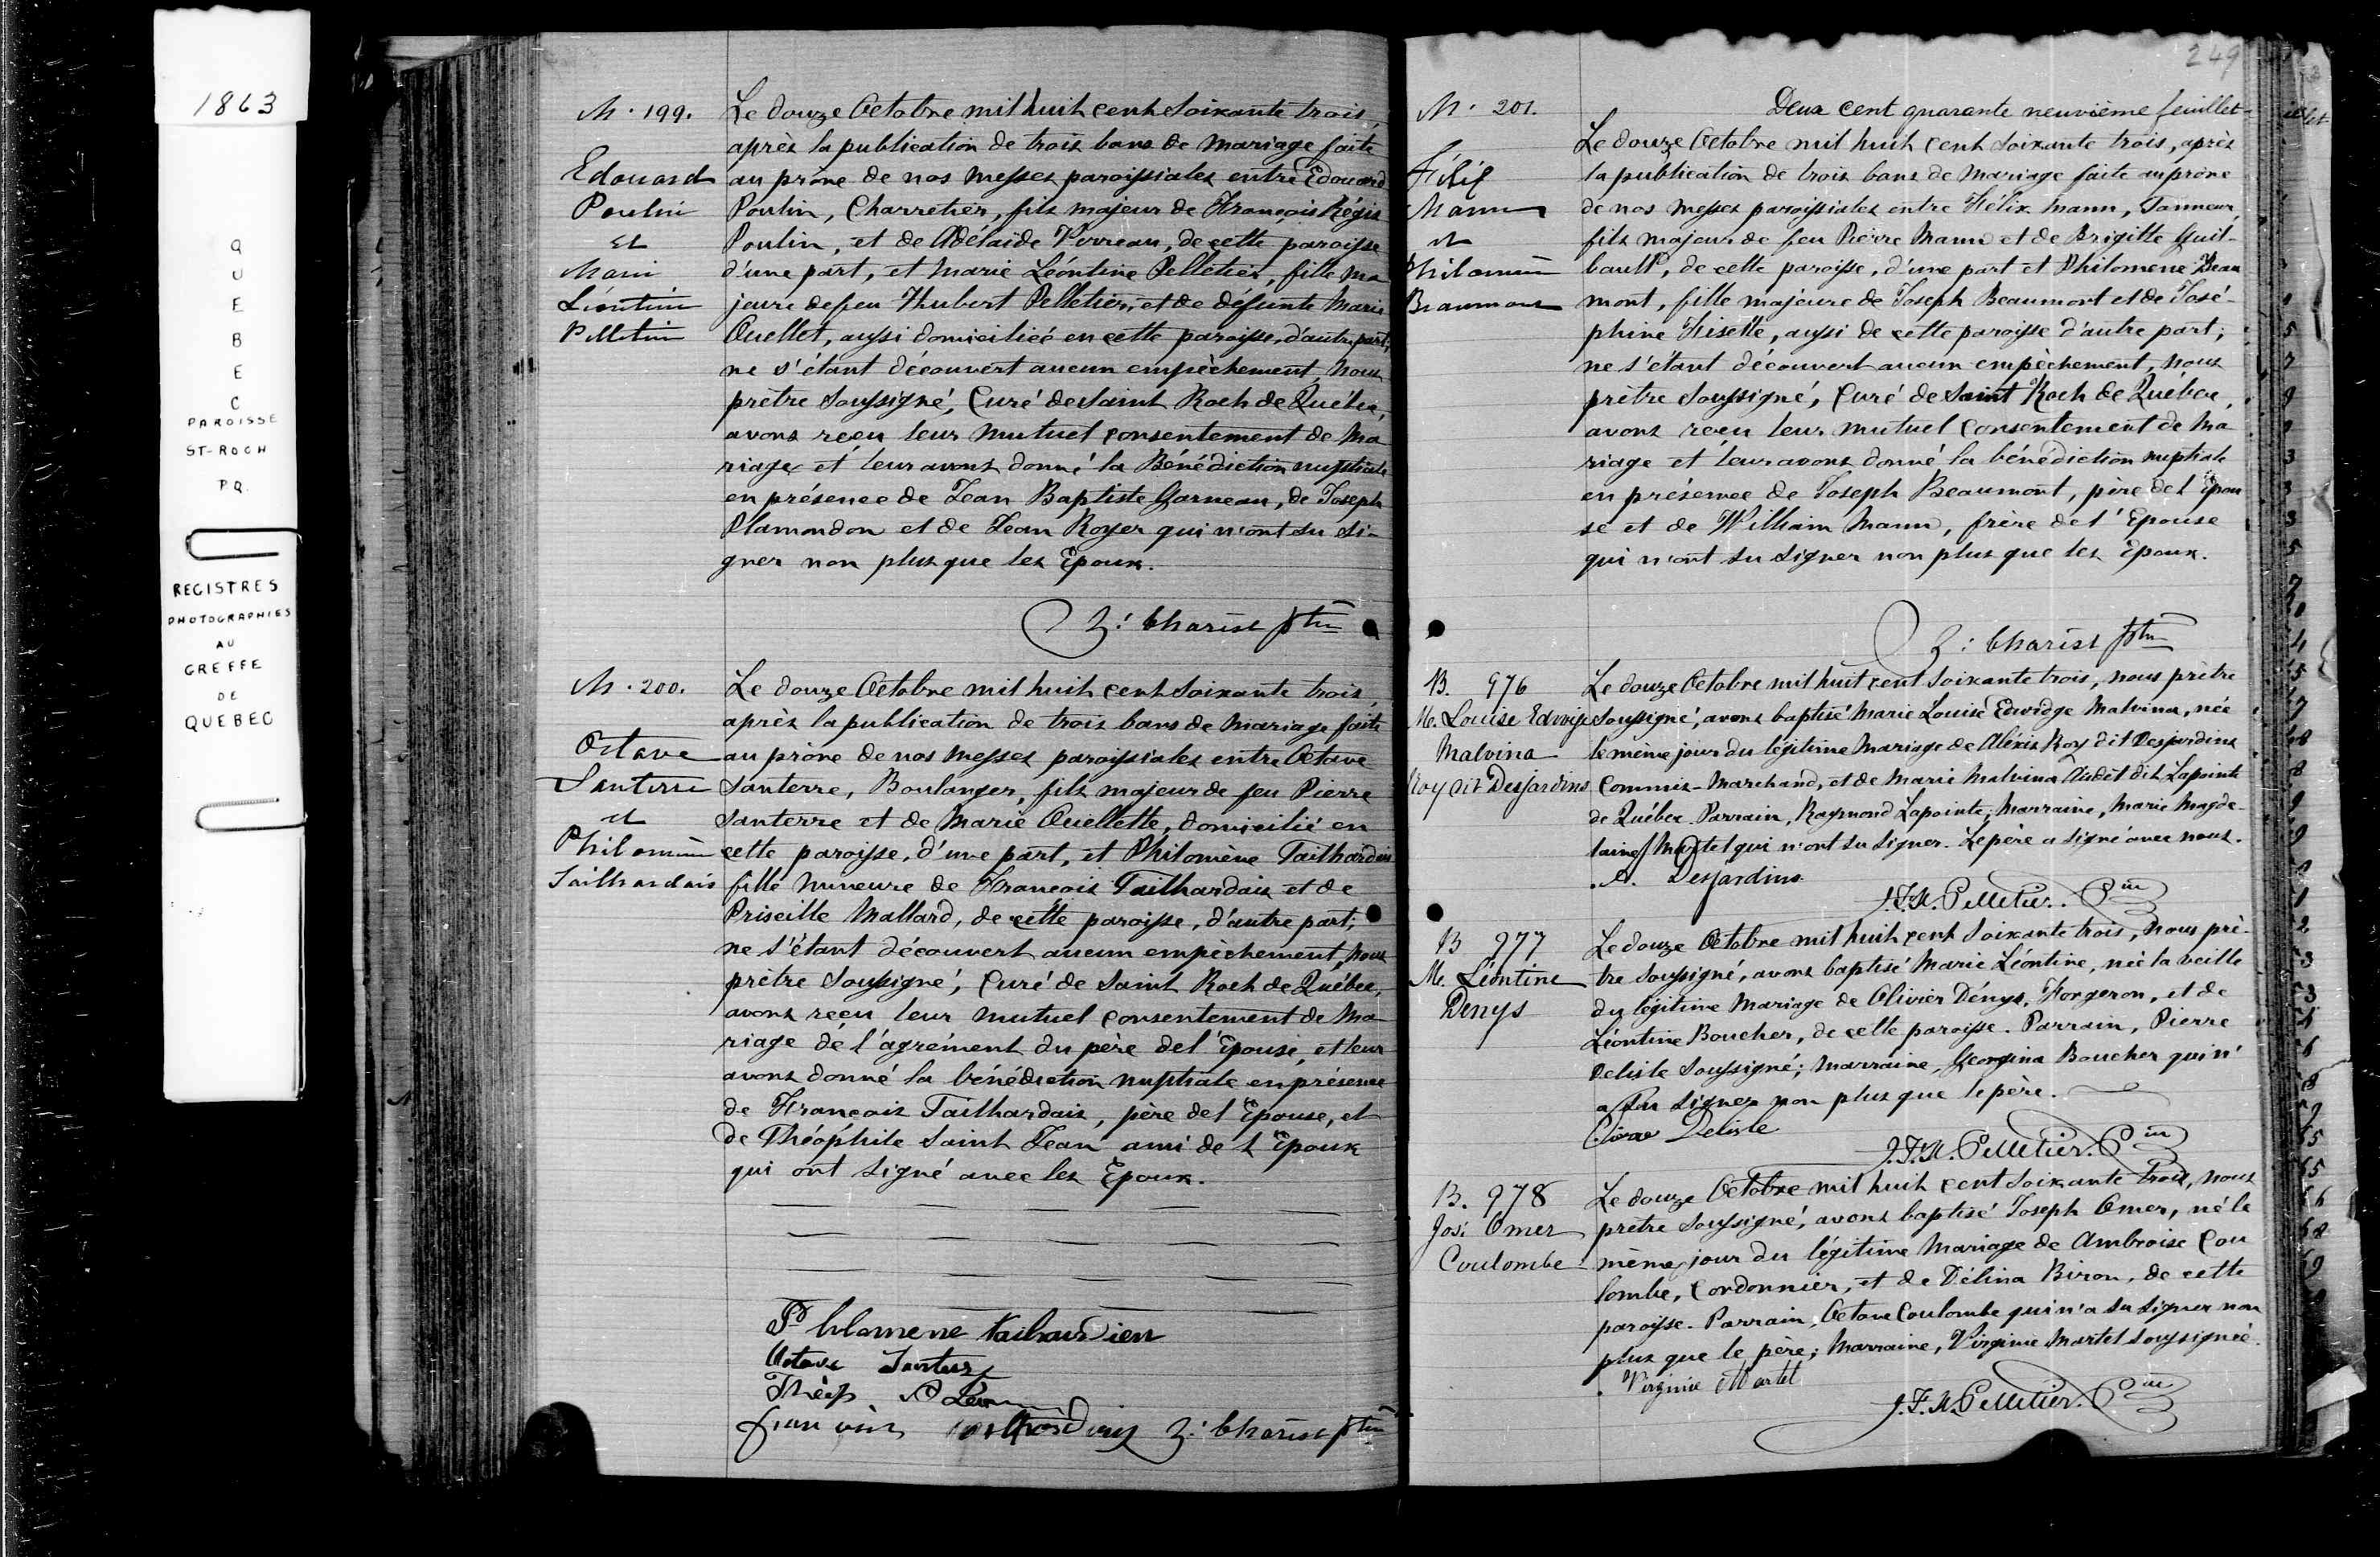 1863
QUEBEC
PAROISSE
ST-ROCH
P.Q.
REGISTRES
PHOTOGRAPHIES
AU
GREFFE
DE
QUEBEC
M. 199.
Edouard
Poulin
et
Marie
Léontine
Pelletier
Le douze Octobre mil huit cent soixante trois,
après la publication de trois bans de mariage faite
au prône de nos messes paroissiales entre Edouard
Poulin, Charretier, fils majeur de François Régis
Poulin, et de Adélaïde Verreau, de cette paroisse
d'une part, et Marie Léontine Pelletier, fille ma
jeure de feu Hubert Pelletier, et de défunte Marie
Ouellet, aussi domiciliée en cette paroisse, d'autre part;
ne s'étant découvert aucun empêchement, nous
prêtre soussigné, Curé de Saint Roch de Québec,
avons reçu leur mutuel consentement de ma
riage et leur avons donné la Bénédiction nuptiale
en présence de Jean Baptiste Garneau, de Joseph
Plamondon et de Jean Royer qui n'ont su si-
gner non plus que les Epoux.
Z: Charest ptre
M. 200.
Octave
Santerre
et
Philomène
Tailhardais
Le douze Octobre mil huit cent soixante trois,
après la publication de trois bans de mariage faite
au prône de nos messes paroissiales entre Octave
Santerre, Boulanger, fils majeur de feu Pierre
Santerre et de Marie Ouellette, domicilié en
cette paroisse, d'une part, et Philomène Tailhardais
fille mineure de François Tailhardais et de
Priscille Mallard, de cette paroisse, d'autre part;
ne s'étant découvert aucun empêchement, nous
prêtre soussigné, Curé de Saint Roch de Québec,
avons reçu leur mutuel consentement de ma
riage de l'agrément du père de l'Epouse, et leur
avons donné la bénédiction nuptiale en présence
de François Tailhardais, père de l'Epouse, et
de Théophile Saint Jean ami de l'Epoux
qui ont signé avec les Epoux.
Philomene
Octave
Théop
Z: Charest ptre
249
M. 201.
Félix
Mann
et
Philomène
Beaumont
Deux cent quarante neuvième feuillet
Le douze Octobre mil huit cent soixante trois, après
la publication de trois bans de mariage faite au prône
de nos messes paroissiales entre Félix Mann, Tanneur,
fils majeur de feu Pierre Mann et de Brigitte Guil-
bault, de cette paroisse, d'une part et Philomène Beau
mont, fille majeure de Joseph Beaumont et de José-
phine Fisette, aussi de cette paroisse d'autre part;
ne s'étant découvert aucun empêchement, nous
prêtre soussigné, Curé de Saint Roch de Québec,
avons reçu leur mutuel consentement de ma
riage et leur avons donné la bénédiction nuptiale
en présence de Joseph Beaumont, père de l'Epou
se et de William Mann, frère de l'Epouse
qui n'ont su signer non plus que les Epoux.
Z: Charest ptre
B. 976
M. Louise Edwige
Malvina
Roy dit Desjardins
Le douze Octobre mil huit cent soixante trois, nous prêtre
soussigné, avons baptisé Marie Louise Edwidge Malvina, née
le même jour du légitime mariage de Alexis Roy dit Desjardins
Commis-Marchand, et de Marie Malvina Audet dit Lapointe
de Québec. Parrain, Raymond Lapointe; Marraine, Marie Magde-
laine Martel qui n'ont su signer. Le père a signé avec nous.
A. Desjardins
J.F.N. Pelletier. Ptre
B 977
M. Léontine
Denys
Le douze Octobre mil huit cent soixante trois, nous prê-
tre soussigné, avons baptisé Marie Léontine, née la veille
du légitime mariage de Olivier Dénys, Forgeron, et de
Léontine Boucher, de cette paroisse. Parrain, Pierre
Delisle soussigné; marraine, Georgina Boucher qui n'
a su signer non plus que le père.
Delisle
J.F.N. Pelletier. Ptre
B. 978
Jos. Omer
Coulombe
Le douze Octobre mil huit cent soixante trois, nous
prêtre soussigné, avons baptisé Joseph Omer, né le
même jour du légitime mariage de Ambroise Cou
lombe, Cordonnier, et de Délina Biron, de cette
paroisse. Parrain, Octave Coulombe qui n'a su signer non
plus que le père; Marraine, Virginie Martel soussignée.
Virginie Martel
J.F.N. Pelletier. Ptre